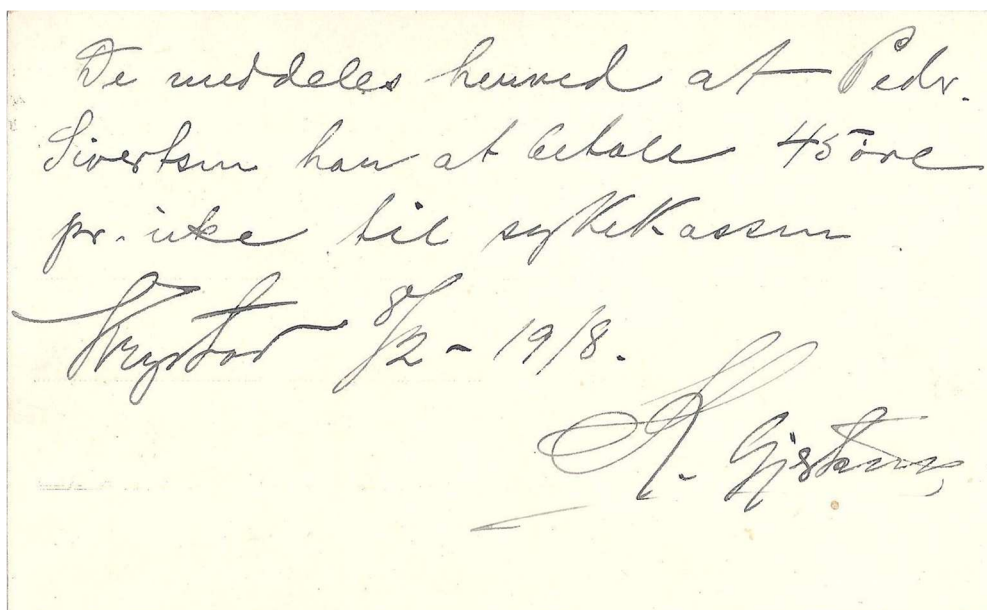 De meddeles herved at Pedr.
Sivertsen har at betale 45 øre
pr. uke til sykekassen
8/2 - 1918.
K.